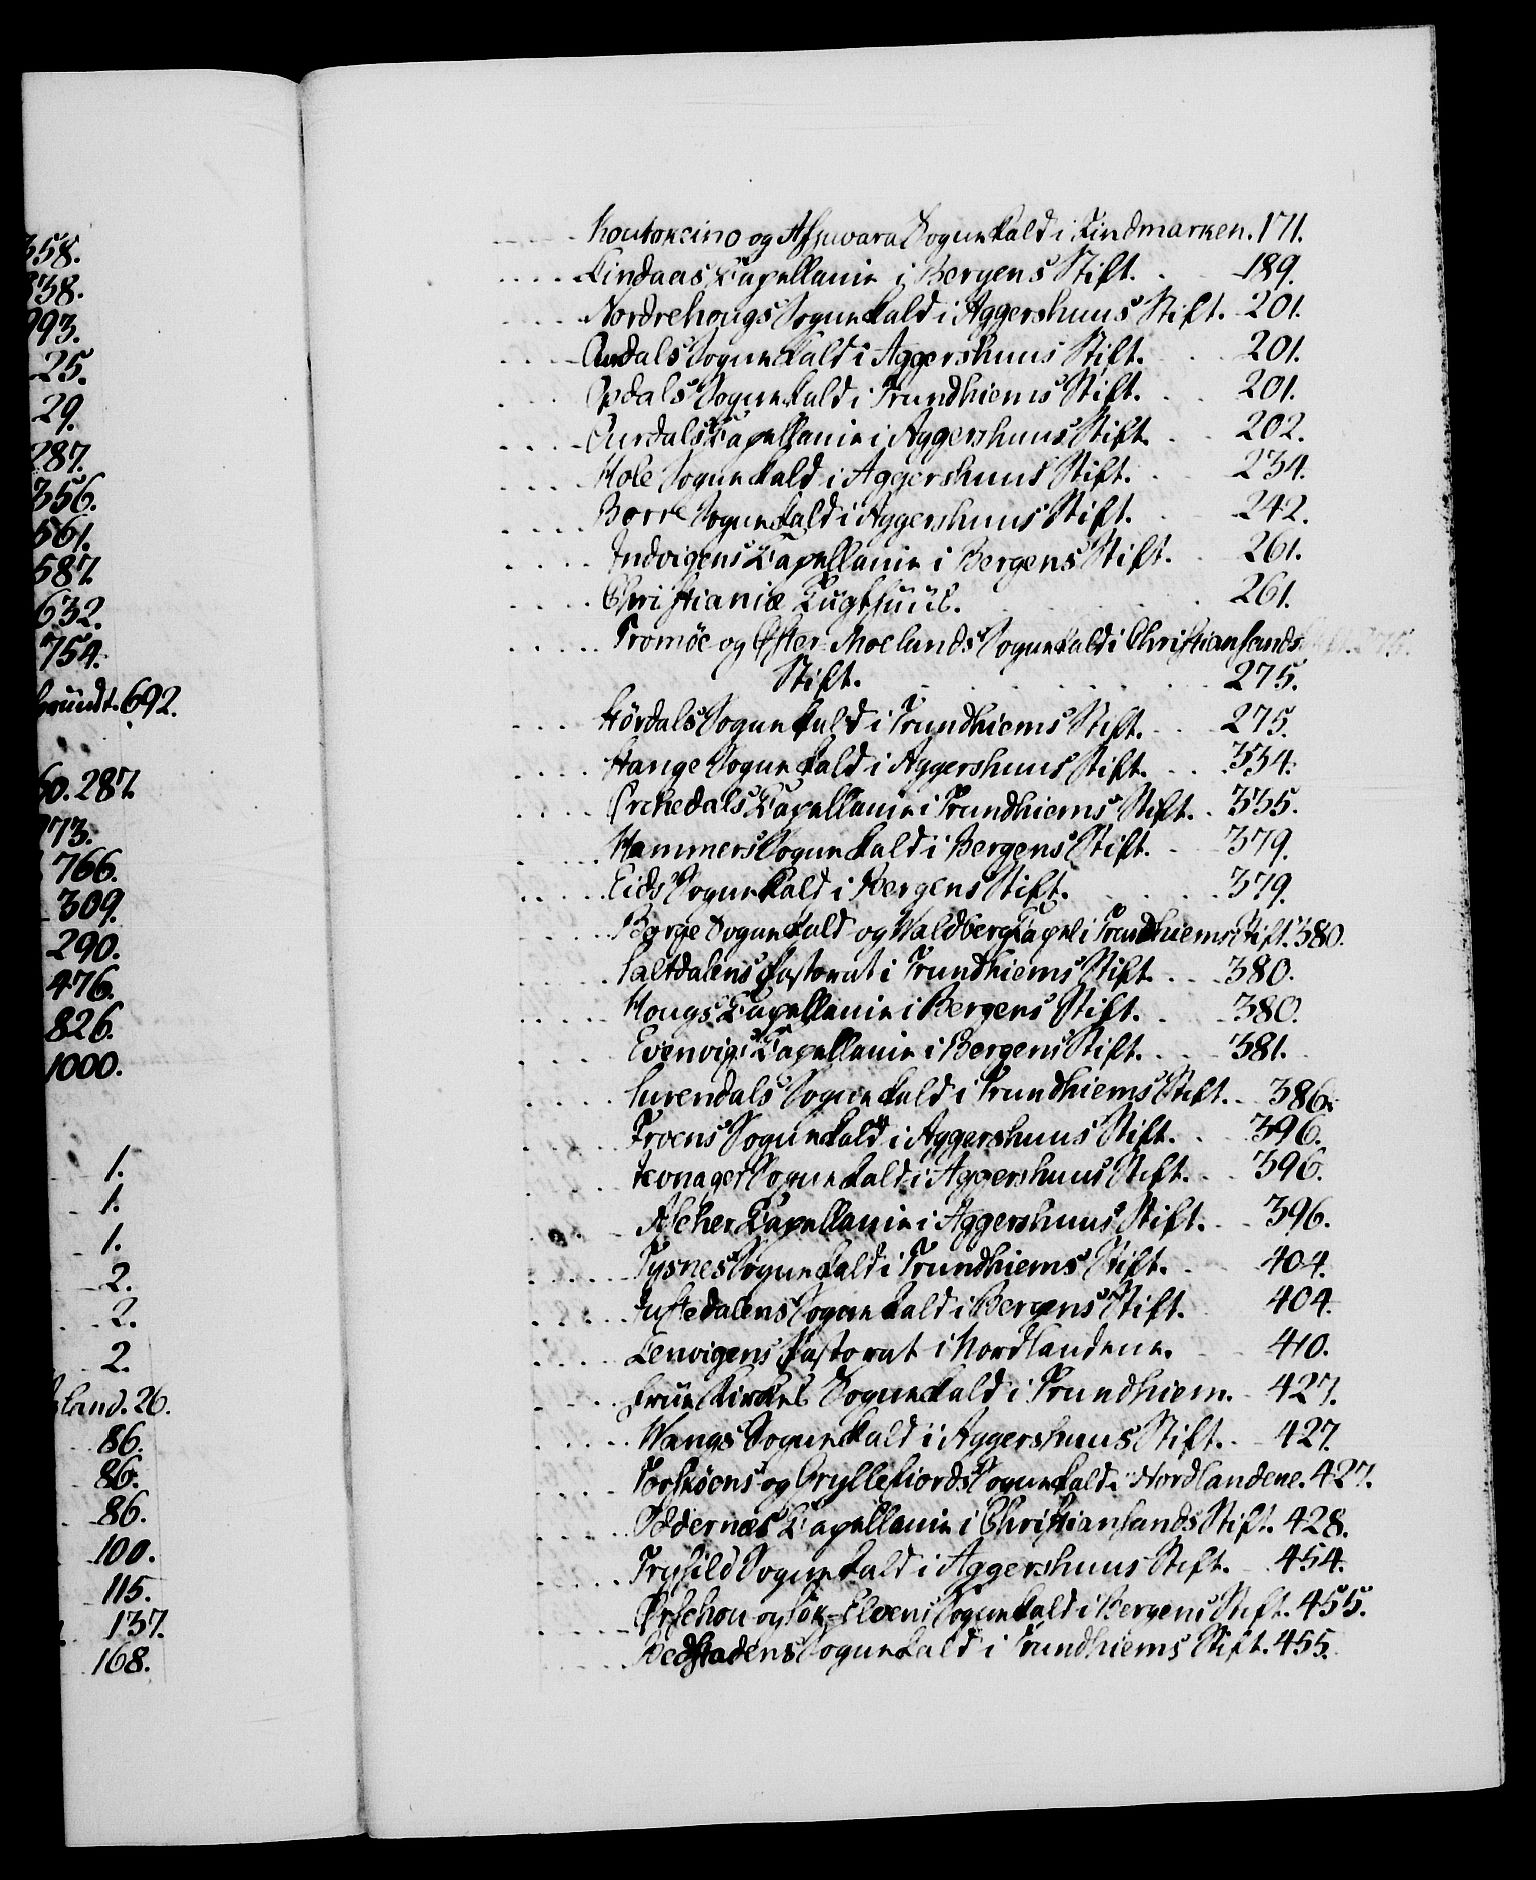 358.
838.
993.
25.
29.
287.
356.
561.
587.
632.
754.
grundt. 692.
60. 287.
773.
766.
309.
290.
476.
826.
1000.
1.
1.
1.
2.
2.
2.
land. 26.
86.
86.
86.
100.
115.
137.
168.
Koutokeino og Afjuvara Sogne Kald i Findmarken. 171.
Lindaas Capellanie i Bergens Stift. 189.
Nordrehougs Sogne Kald i Aggershuus Stift. 201.
Aurdals Sogne Kald i Aggershuus Stift. 201.
Opdals Sogne Kald i Trundhiems Stift. 201.
Aurdals Capellanie i Aggershuus Stift. 202.
Hole Sogne Kald i Aggershuus Stift. 234.
Borre Sogne Kald i Aggershuus Stift. 242.
Indvigens Capellanie i Bergens Stift. 261.
Christianiæ Tugthuus. 261.
Tromöe og Öster-Moelands Sogne Kald i Christiansands
Stift. 275.
Stördals Sogne Kald i Trundhiems Stift. 275.
Stange Sogne Kald i Aggershuus Stift. 334.
Orchedals Capellanie i Trundhiems Stift. 335.
Hammers Sogne Kald i Bergens Stift. 379.
Eids Sogne Kald i Bergens Stift. 379.
Borge Sogne Kald og Waldberg Capel i Trundhiems Stift. 380.
Saltdalens Pastorat i Trundhiems Stift. 380.
Hougs Capellanie i Bergens Stift. 380.
Evenvigs Capellanie i Bergens Stift. 381.
Surendals Sogne Kald i Trundhiems Stift. 386.
Froens Sogne Kald i Aggershuus Stift. 396.
Jevnager Sogne Kald i Aggershuus Stift. 396.
Ascher Capellanie i Aggershuus Stift. 396.
Tysnes Sogne Kald i Trundhiems Stift. 404.
Justedalens Sogne Kald i Bergens Stift. 404.
Lenvigens Pastorat i Nordlandene. 410.
Frue Kirkes Sogne Kald i Trundhiem. 427.
Wangs Sogne Kald i Aggershuus Stift. 427.
Torskøens og Gryllefiords Sogne Kald i Nordlandene. 427.
Oddernæs Capellanie i Christiansands Stift. 428.
Trysild Sogne Kald i Aggershuus Stift. 454.
Ørschou og Søk-Elvens Sogne Kald i Bergens Stift. 455.
Bedstadens Sogne Kald i Trundhiems Stift. 455.